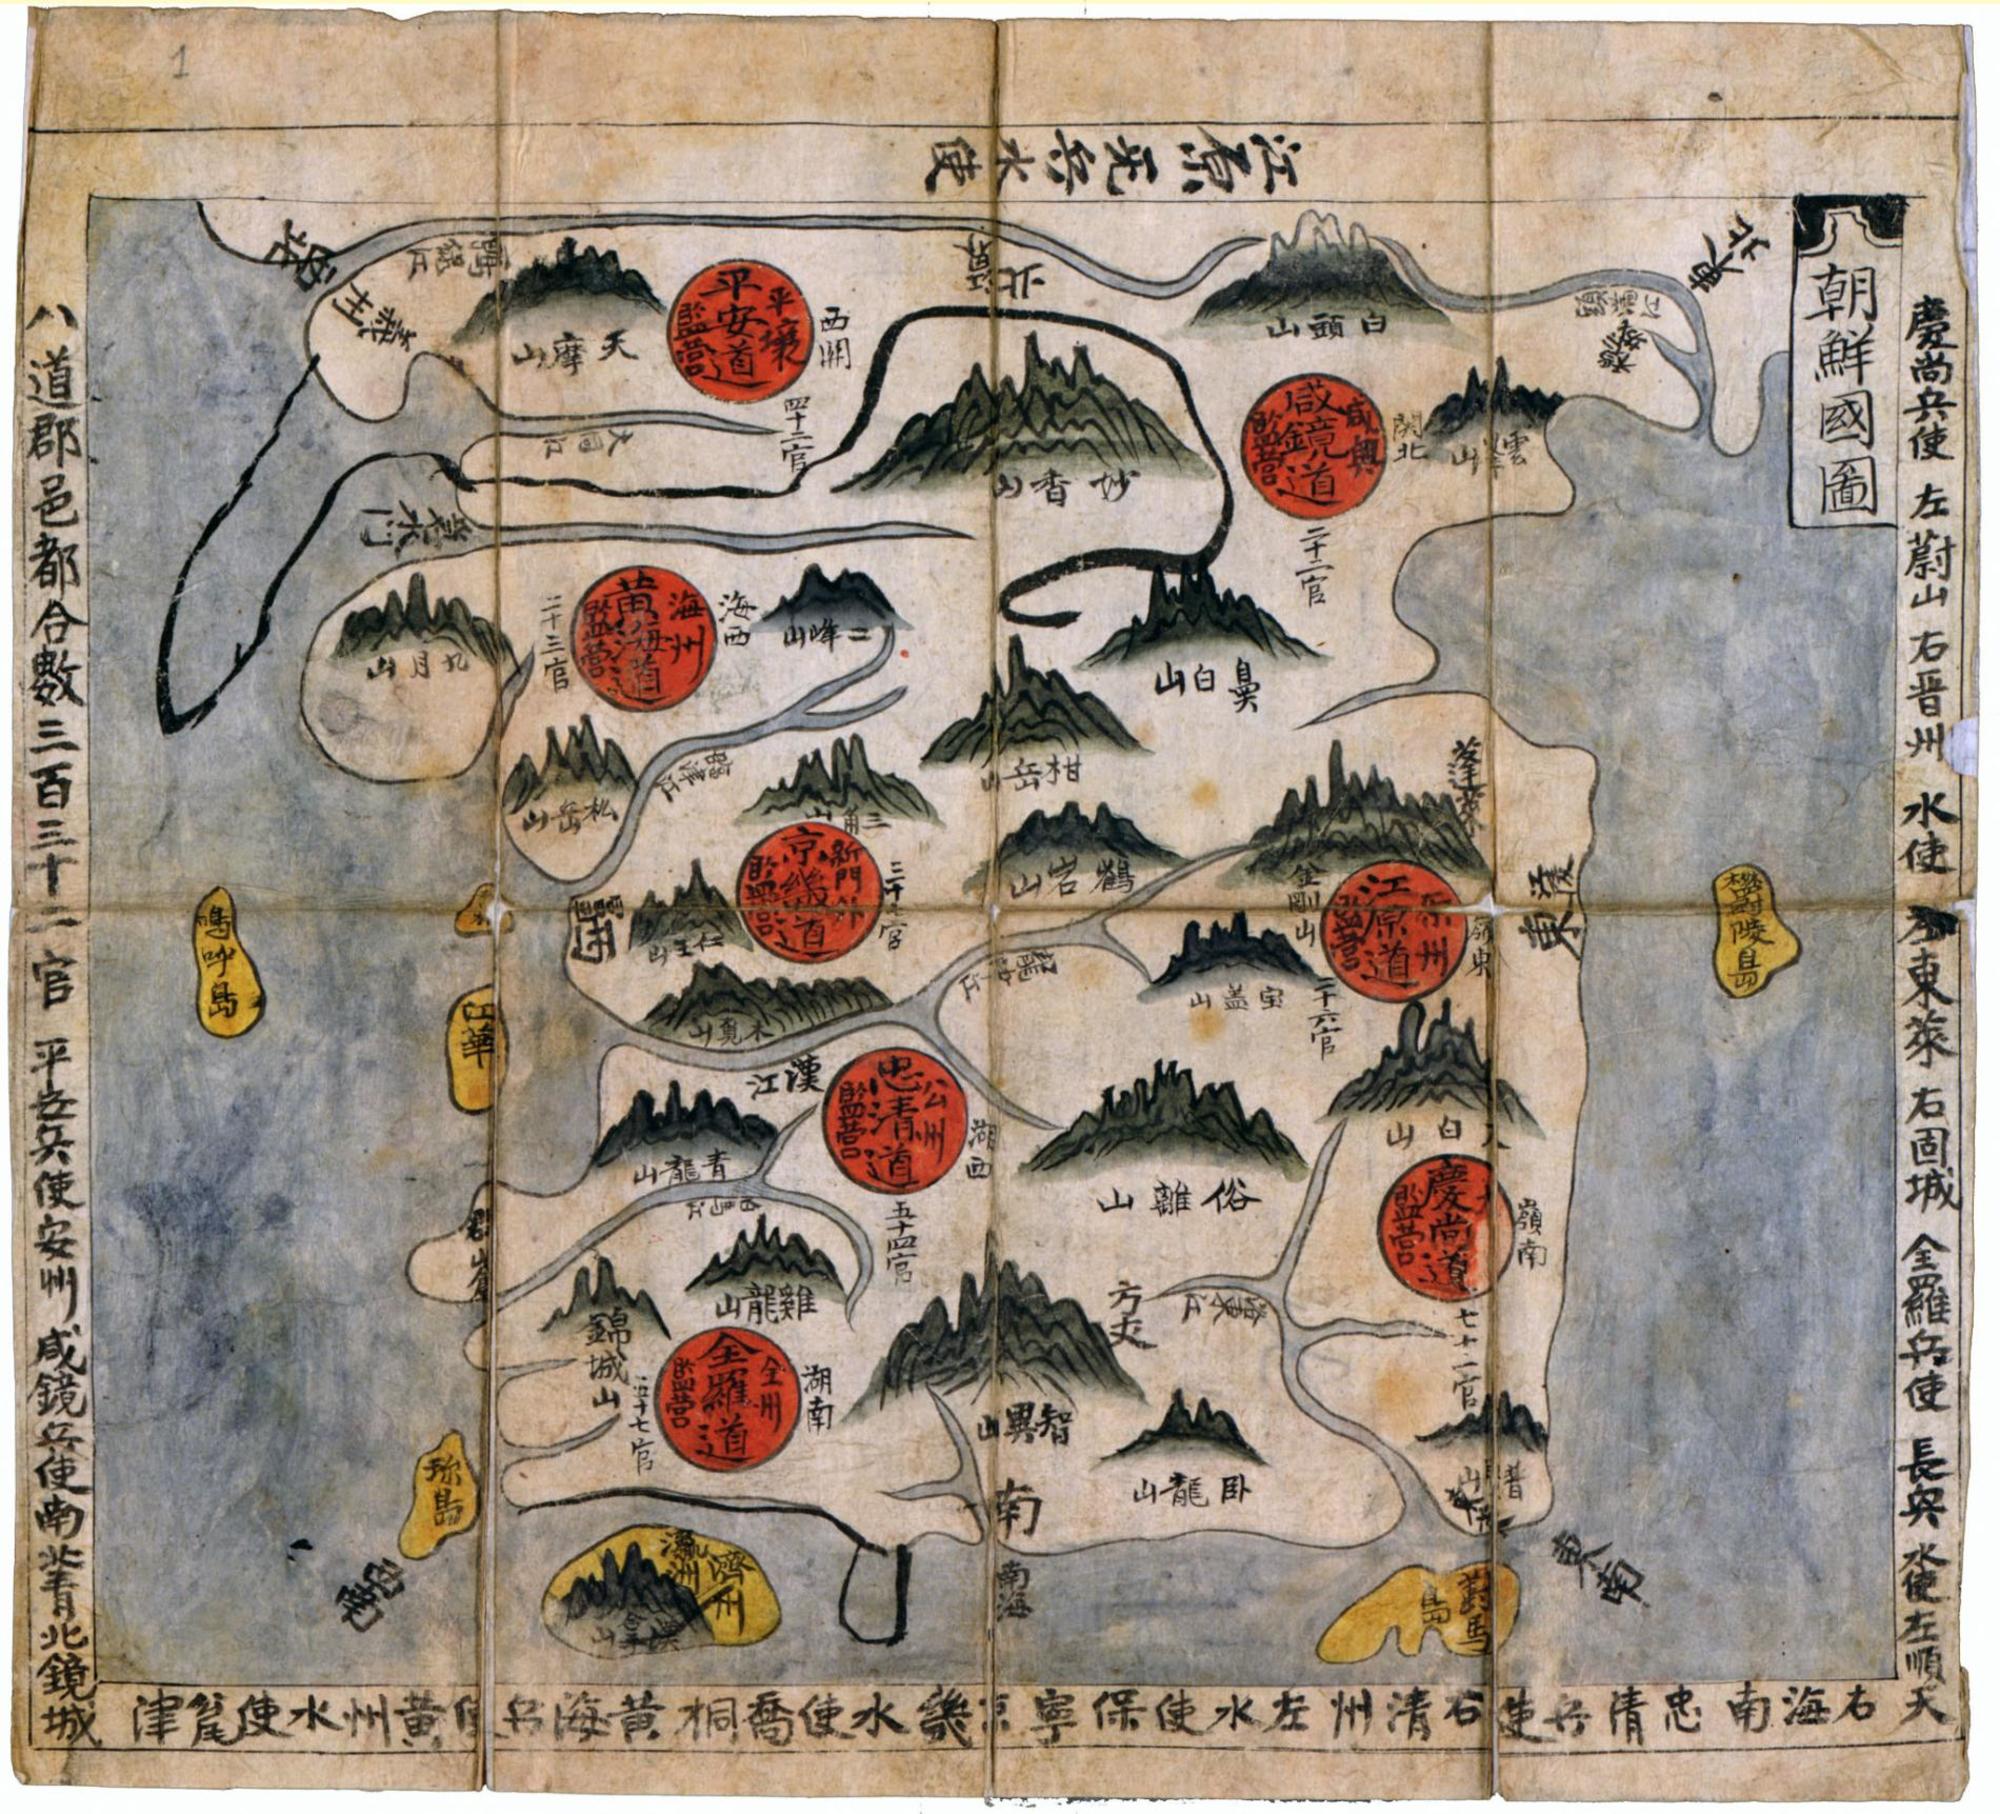 1
朝鮮國圖
江原无兵水使
慶尚兵使 左蔚山 右晋州 水使 左東萊 右固城 全羅兵使 長興 水使左順天
右海南 忠清兵使右清州左水使保寧京畿水使喬桐黃海兵使黃州水使瓮津
八道郡邑都合數三百三十二官 平安兵使安州咸鏡兵使南北青北鏡城
東北
正北
西北
義州
鴨綠江
天摩山
平安道
平壤
監營
西關
四十二官
大同江
白頭山
豆滿江
妙香山
咸鏡道
咸興
監營
關北
二十二官
雲
山
九月山
黃海道
海州
監營
海西
二十三官
二峰山
鼻白山
松岳山
臨津江
紺岳山
三角山
京畿道
新門外
監營
仁王山
木覓山
正西
鶴岩山
蓬萊
金剛山
江原道
原州
監營
嶺東
二十六官
江陵
正東
宝盖山
漢江
忠清道
公州
監營
湖西
五十四官
青龍山
白馬江
俗離山
太白山
慶尚道
監營
嶺南
七十一官
洛東江
群山
雞龍山
錦城山
全羅道
全州
監營
湖南
五十七官
智異山
方丈
卧龍山
南
南海
東南
西南
鬱陵島
江華
瀛洲
濟州
漢拏山
對馬島